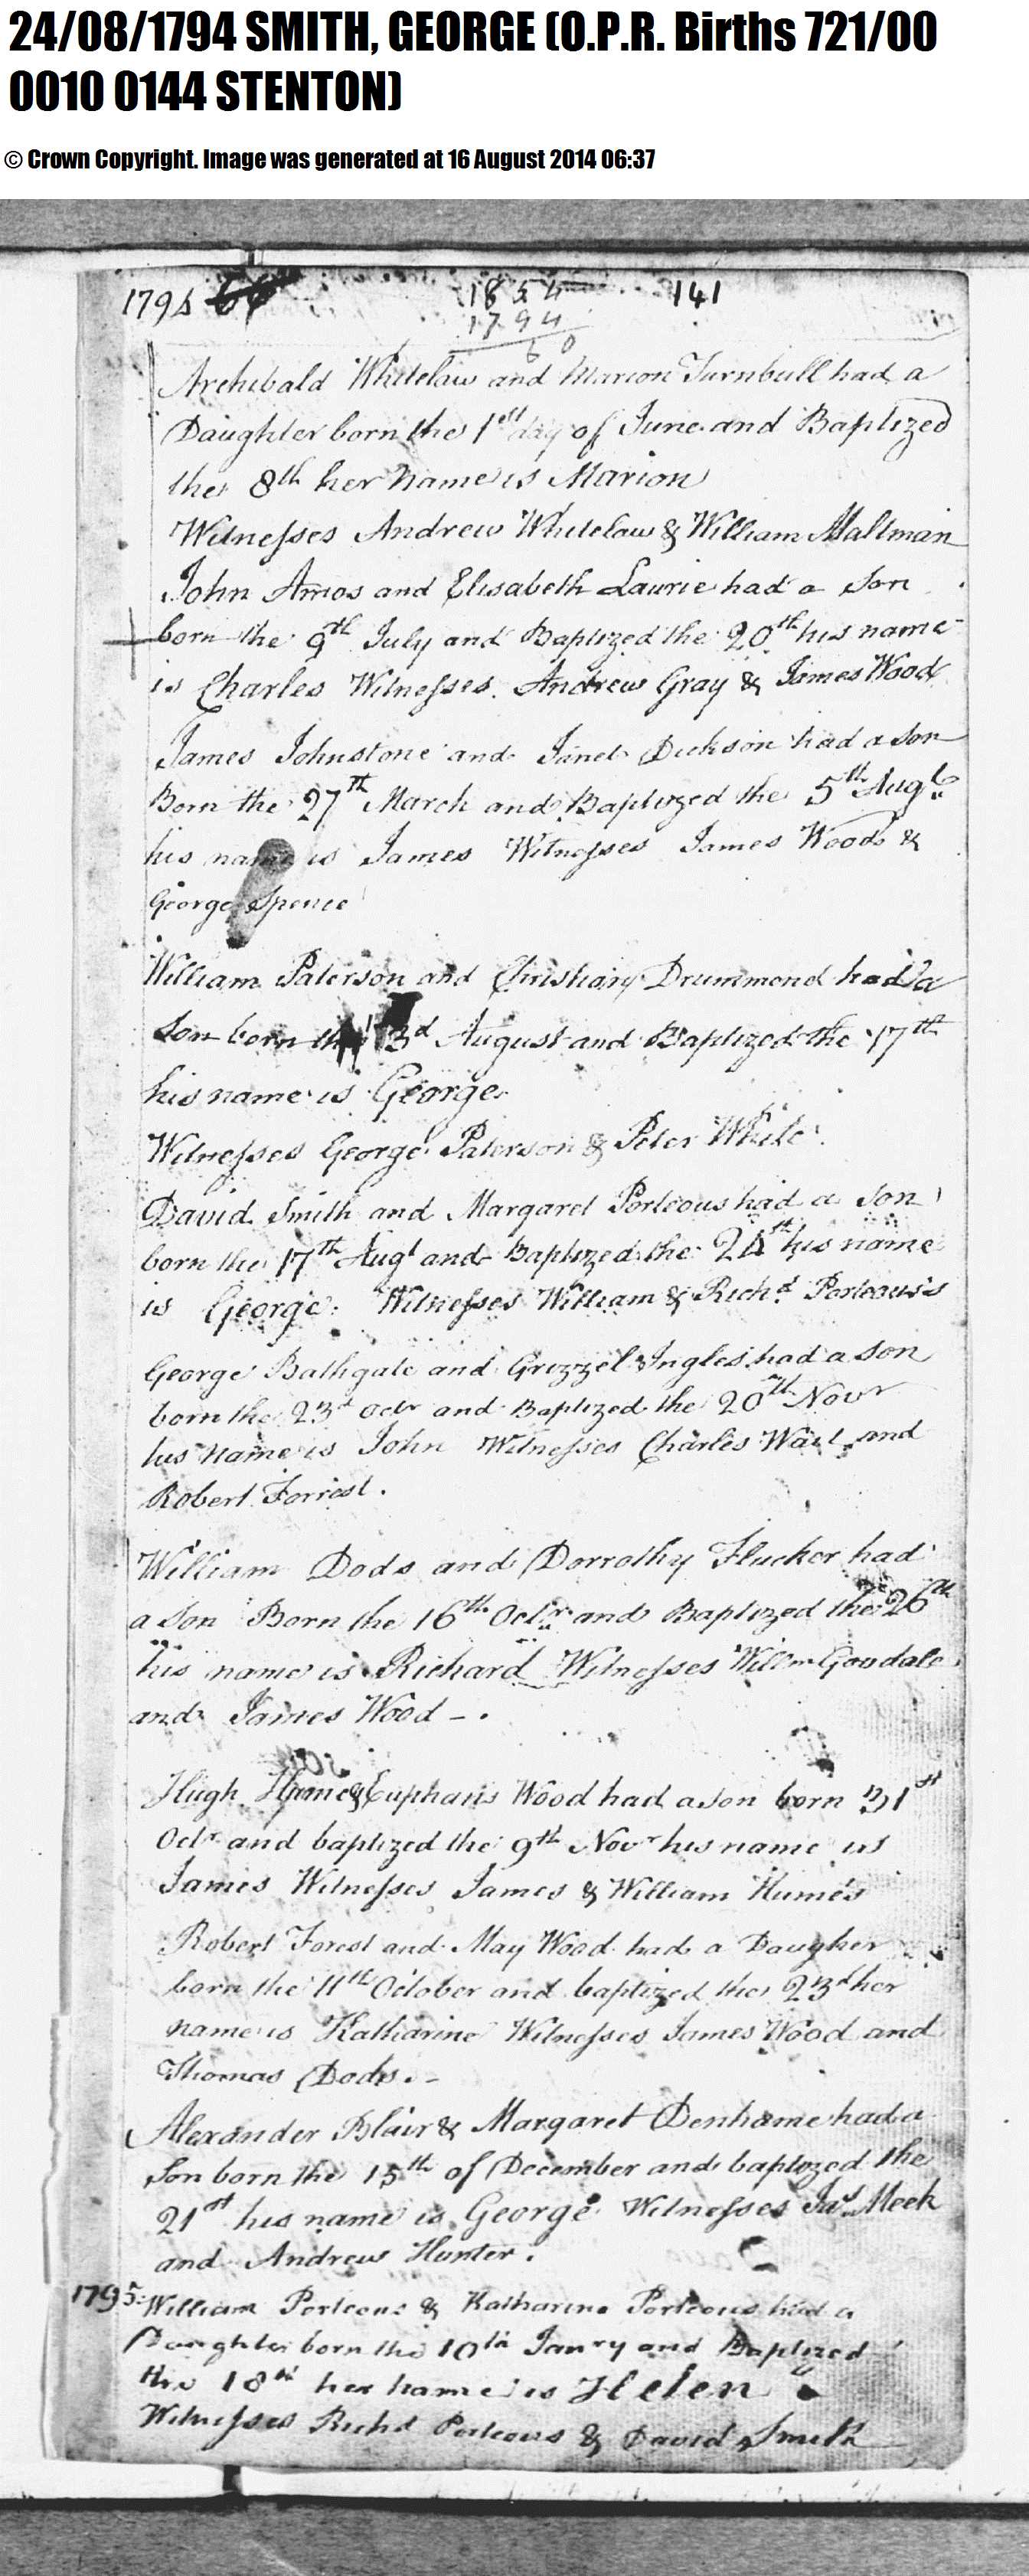 24/08/1794 SMITH, GEORGE (O.P.R. Births 721/00
0010 0144 STENTON)
© Crown Copyright. Image was generated at 16 August 2014 06:37
1794 1854 141
1794
60
Archibald Whitelaw and Marion Turnbull had a
Daughter born the 1st day of June and Baptized
the 8th her Name is Marion
Witnesses Andrew Whitelaw & William Maltman
John Amos and Elisabeth Laurie had a Son
born the 9th July and Baptized the 20th his name
is Charles Witnesses. Andrew Gray & James Wood
James Johnstone and Janet Dickson had a Son
Born the 27th March and Baptized the 5th Augt
his name is James Witnesses James Wood &
George Spence
William Paterson and Christiany Drummond had a
Son born the 3d August and Baptized the 17th
his name is George
Witnesses George Paterson & Peter White
David Smith and Margaret Porteous had a Son
born the 17th Augt and Baptized the 24th his name
is George. Witnesses William & Richd Porteous's
George Bathgate and Grizzel Ingles had a son
born the 23d Octr and Baptized the 20th Novr
his name is John Witnesses Charles Wait and
Robert Forrest.
William Dods and Dorrothy Flucker had
a Son Born the 16th Octr and Baptized the 26th
his name is Richard Witnesses Willm Goodale
and James Wood - .
Hugh Hume & Euphans Wood had a Son born 31st
Octr and baptized the 9th Novr his name is
James Witnesses James & William Humes
Robert Forest and May Wood had a Daugher
born the 11th October and baptized the 23d her
name is Katharine Witnesses James Wood and
Thomas Dods. -
Alexander Blair & Margaret Denhame had a
Son born the 15th of December and baptized the
21st his name is George Witnesses Jas Meek
and Andrew Hunter.
1795 William Porteous & Katharine Porteous had a
Daughter born the 10th Janry and Baptized
the 18th her name is Helen
Witnesses Richd Porteous & David Smith